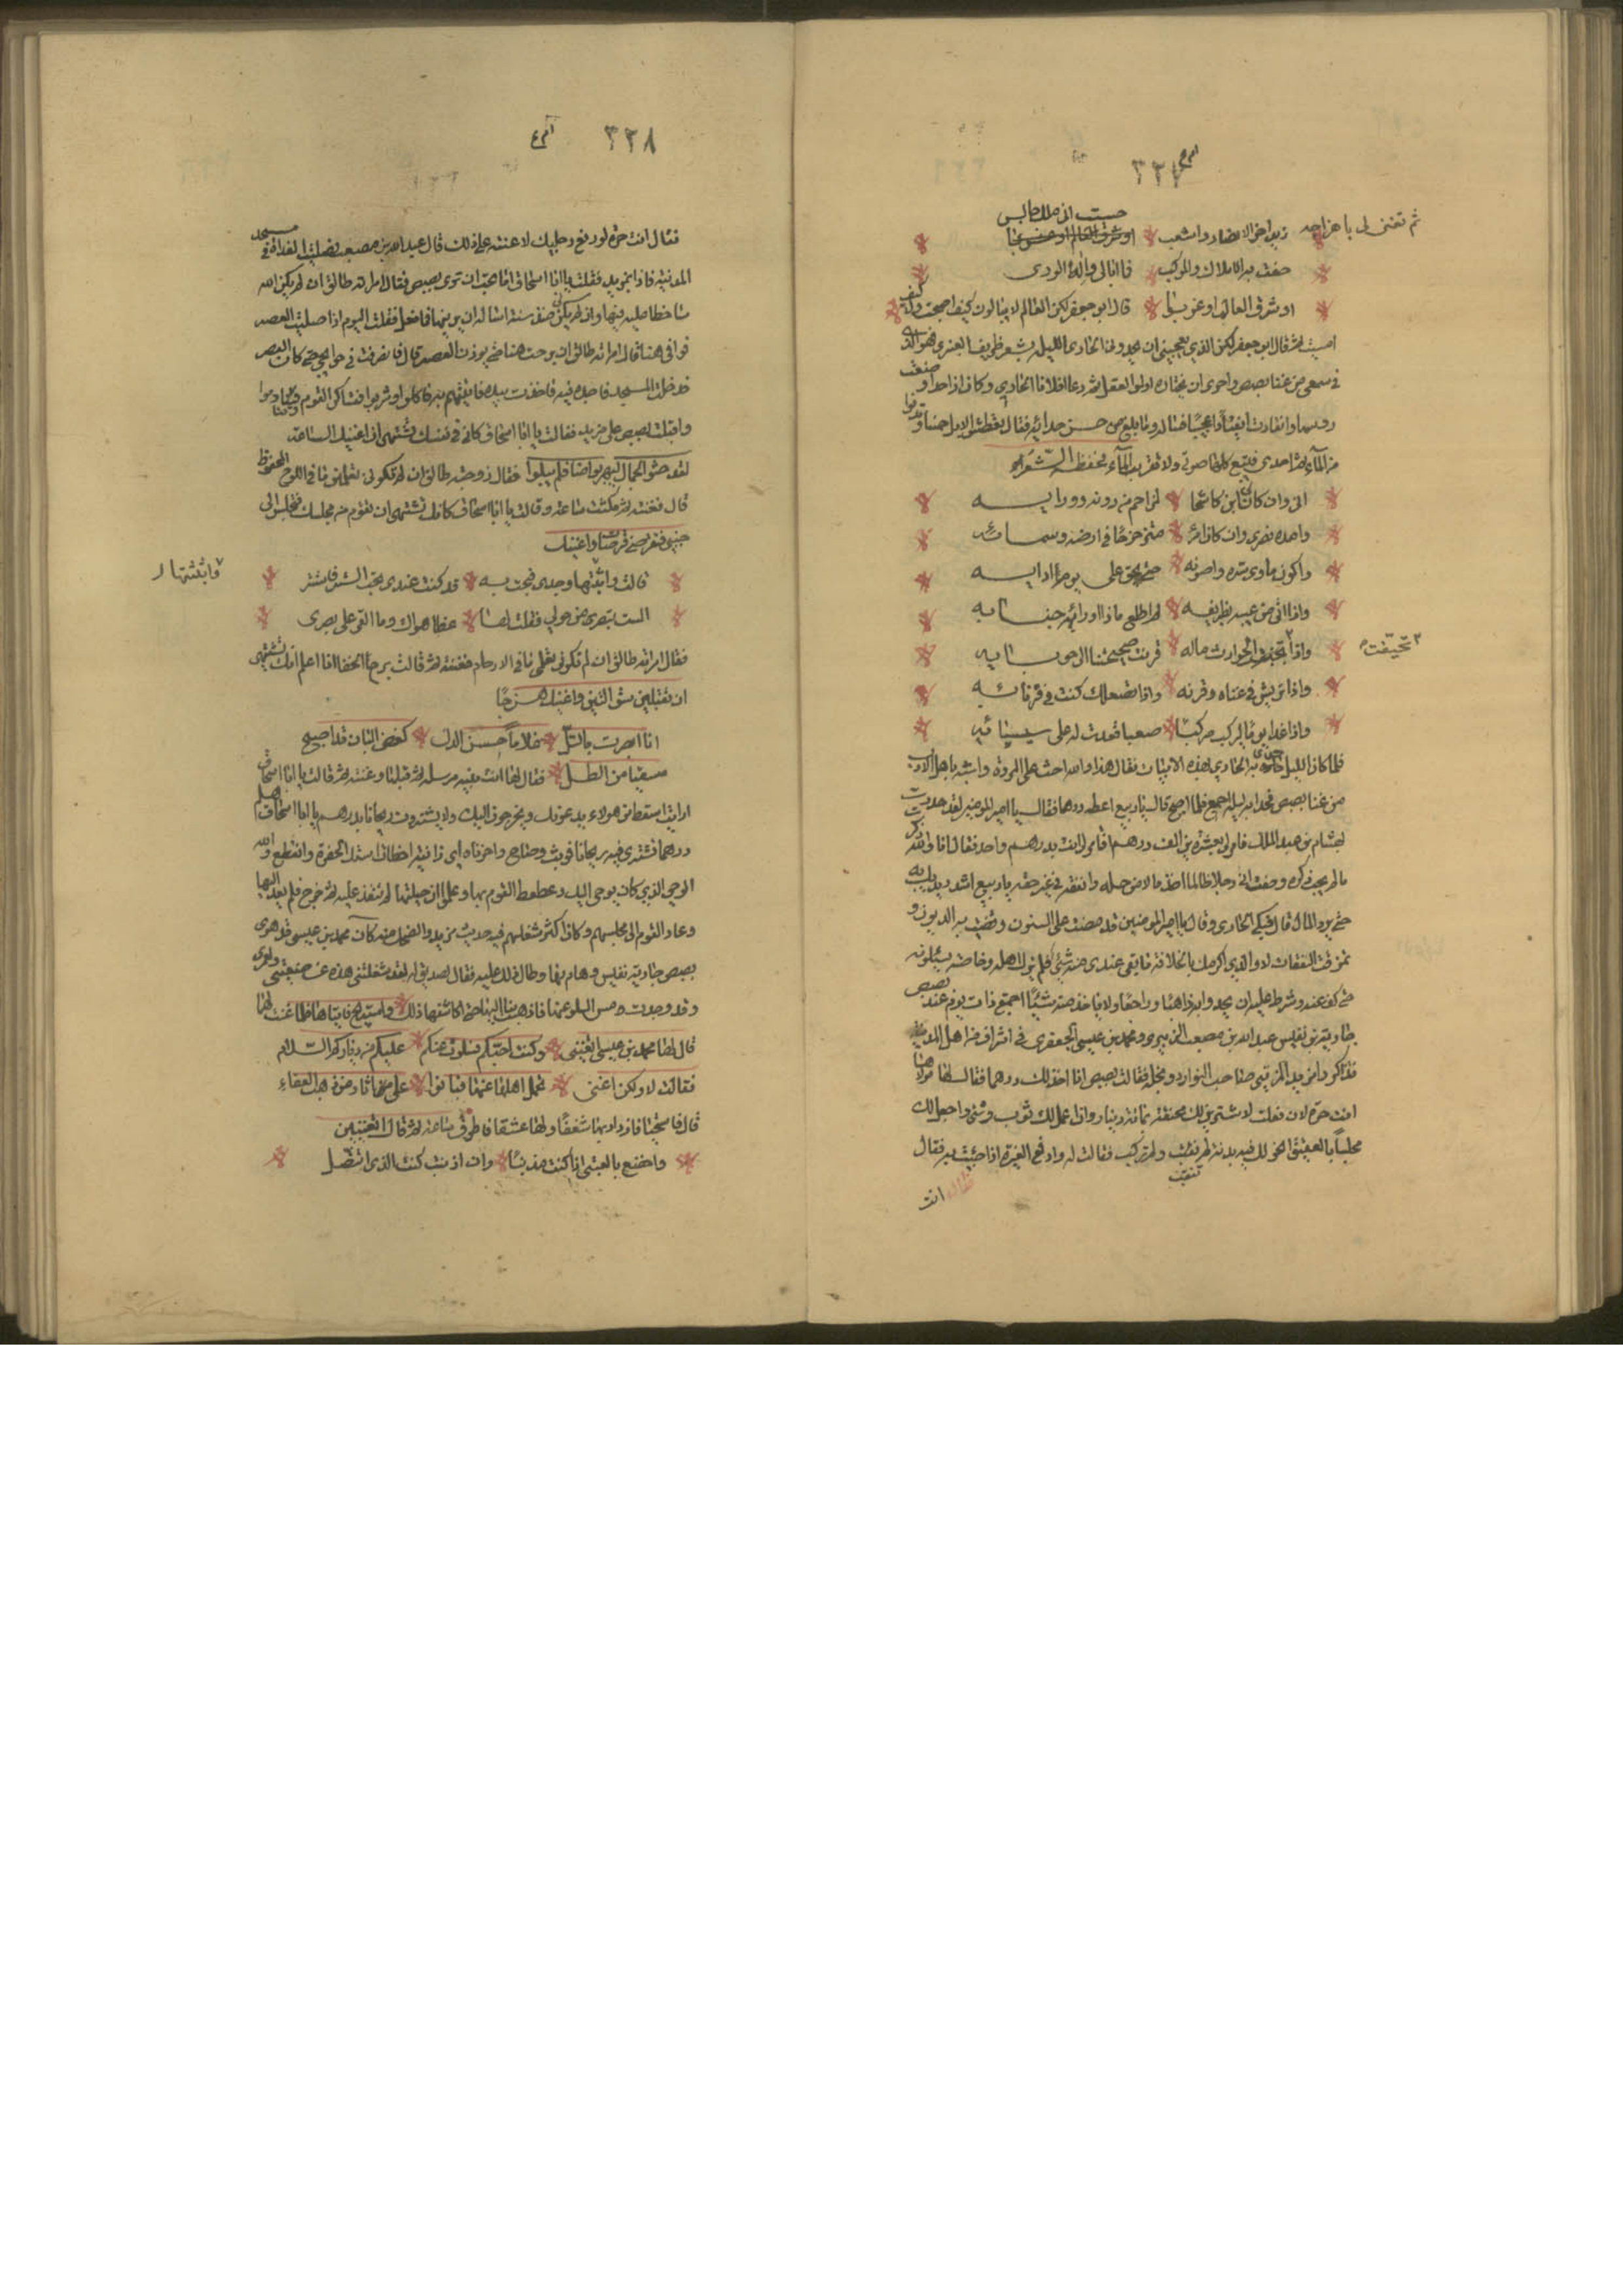 ٣٢٧
ثم تغنى لى يا هزاجه
حسبت انى مالك جالس
حفت به الاملاك والموكب فلا ابالى واله الورى
اوشرق العالم او غربوا قال ابو جعفر لكن العالم لا يبالون كيف اصبحت وكيف
امسيت ثم قال ابو جعفر لكن الذي يعجبنى ان يحدو بى الحادى الليلة بشعر طريف العنبرى فهو الذ
فى سمعى من غنا بصبص واحرى ان يختاره اولو العقل ثم دعا فلانا الحادى وكان اذا حدا وضعت
رؤسها وانقادت انقيادا عجيبا فساله وما بلغ من حسن حدائه فقال تعطش الابل خمسا وتدنوا
من الماء ثم احدى فيتبع كلها صوتى ولا تقرب الماء فحفظ الشعر
انى وان كان ابن عمى كاشحا لمزاحم من دونه وورايه
وامده نصرى وان كان امرءا متزحزحا فى ارضه وسمائه
واكون ماوى سره واصونه حتى يحق على يوم ادايه
واذا اتى من غيبه بطريفة لم اطلع ماذا وراء خبائه
واذا تحيفت الحوادث ماله قرنت صحيحتنا الى جربائه
تحيّفت
واذا تريش فى غناه وفرته واذا تصعلك كنت فى قرنائه
واذا غدا يوما ليركب مركبا صعبا قعدت له على سيسائه
فلما كان الليل حدى به الحادى بهذه الابيات فقال هذا والله احث على المروة واشبه باهل الادب
من غنا بصبص فحدا به ليله اجمع فلما اصبح قال يا ربيع اعطه درهما فقال يا امير المومنين لقد حدوت
بهشام بن عبد الملك فامر لى بعشرين الف درهم وتامر لى انت بدرهم واحد فقال انا والله ذكر
ما لم يجب ذكره وصفت انى رجلا ظالما اخذ مالا من غير حله وانفقه فى غير حقه يا ربيع اشدد يديك به
حتى يرد المال قال فبكى الحادى وقال يا امير المومنين قد مضت على السنون وقضيت به الديون و
تمزقت النفقات لا والذى اكرمك بالخلافة ما بقى عندى منه شئ فلم يزل اهله وخاصته يسئلونه
حتى كف عنه وشرط عليه ان يحدو به ذاهبا وراجعا ولا ياخذ منه شيئا اجتمع ذات يوم عند بصبص
جارية بن نفيس عبد الله بن مصعب الزبيرى ومحمد بن عيسى الجعفرى فى اشراف من اهل المدينة
فتذاكروا مزيد المدينى صاحب النوادر وبخله فقالت بصبص انا اخذ لك درهما فقال لها مولاها
انت حرة لان فعلت لاشترين لك مخنقة بمائة دينار وان اعمل لك ثوب وشى واجعل لك
مجلسا بالعقيق انحر لك فيه بدنة لم تقتب ولم تركب فقالت له وادفع الغيرة اذا جئت به فقال
انت
٣٢٨
فقال انت حرة لو رفع رجليك لاعنته على ذلك قال عبد الله بن مصعب فصليت الغداة فى مسجد
المدينة فاذا بمزيد فقلت يا ابا اسحاق اما تحب ان ترى بصبص فقال امراته طالق ان لم يكن الله
ساخطا عليه فيها وان لم يكن منذ سنة اساله ان يرينيها فما فعل فقلت اليوم اذا صليت العصر
فوافى هنا قال امراته طالق ان برحت هنا حتى يوذن العصر قال فانصرفت فى حوائجى حتى كانت العصر
فدخلت المسجد فاصبت فيه فاخذت بيده فاتيتهم به فاكلوا وشربوا وتساكر القوم وتناوموا
واقبلت بصبص على مزيد فقالت يا ابا اسحاق كان فى نفسك تشتهى ان اغنيك الساعة
لقد حثوا الجمال ليهربوا منا فلم يبلوا فقال زوجته طالق ان لم تكونى تعلمين ما فى اللوح المحفوظ
قال فغنته ثم مكثت ساعة وقالت يا ابا اسحاق كانك تشتهى ان تقوم من مجلسك فتجلس الى
جنبى فتقرصنى قرصات واغنيك
وابثثتها
قالت وابثثتها وجدى فبحت به قد كنت عندى تحب الستر فاستتر
الست تبصر من حولى فقلت لها غطا هواك وما القى على بصرى
فقال امراته طالق ان لم تكونى تعلمى ما فى الارحام فغنته ثم قالت برح الخفا انا اعلم انك تشتهى
ان تقبلنى شق التين واغنيك هزجا
انا ابصرت بالتل غلاما حسن الدل كغصن البان قد اصبح
مسقيا من الطل فقال لها انت نبية مرسلة ثم قبلها وغنته ثم قالت يا ابا اسحاق
ارايت اسقط من هولاء يدعونك ويخرجونى اليك ولا يشترون ريحانا بدرهم يا ابا اسحاق هلم
درهما نشترى به ريحانا فوثب وصاح واحرباه اى زانية اخطات استك الحفرة وانقطع والله
الوحى الذى كان يوحى اليك وعطعط القوم بها وعلموا ان حيلتها لم تنفذ عليه ثم خرج فلم يعد اليها
وعاد القوم الى مجلسهم وكان اكثر شغلهم فيه حديث مزيد والضحك منه كان محمد بن عيسى قد هوى
بصبص جارية نفيس وهام بها وطال ذلك عليه فقال لصديق له لقد شغلتنى هذه عن صنعتى وامرى
وقد وجدت مس السلو عنها فاذهب بنا اليها حتى اكاشفها ذلك واستريح فاتياها فلما غنت لهما
قال لها محمد بن عيسى اتغنين وكنت احبكم فسلوت عنكم عليكم فى دياركم السلام
فقالت لا ولكن اغنى تحمل اهلها عنها فبانوا على اثار من ذهب العفاء
قال فاستحيا فازداد بها شغفا ولها عشقا فاطرق ساعة ثم قال اتغنين
واخضع بالعتبى اذا كنت مذنبا وان اذنبت كنت الذى اتنصل